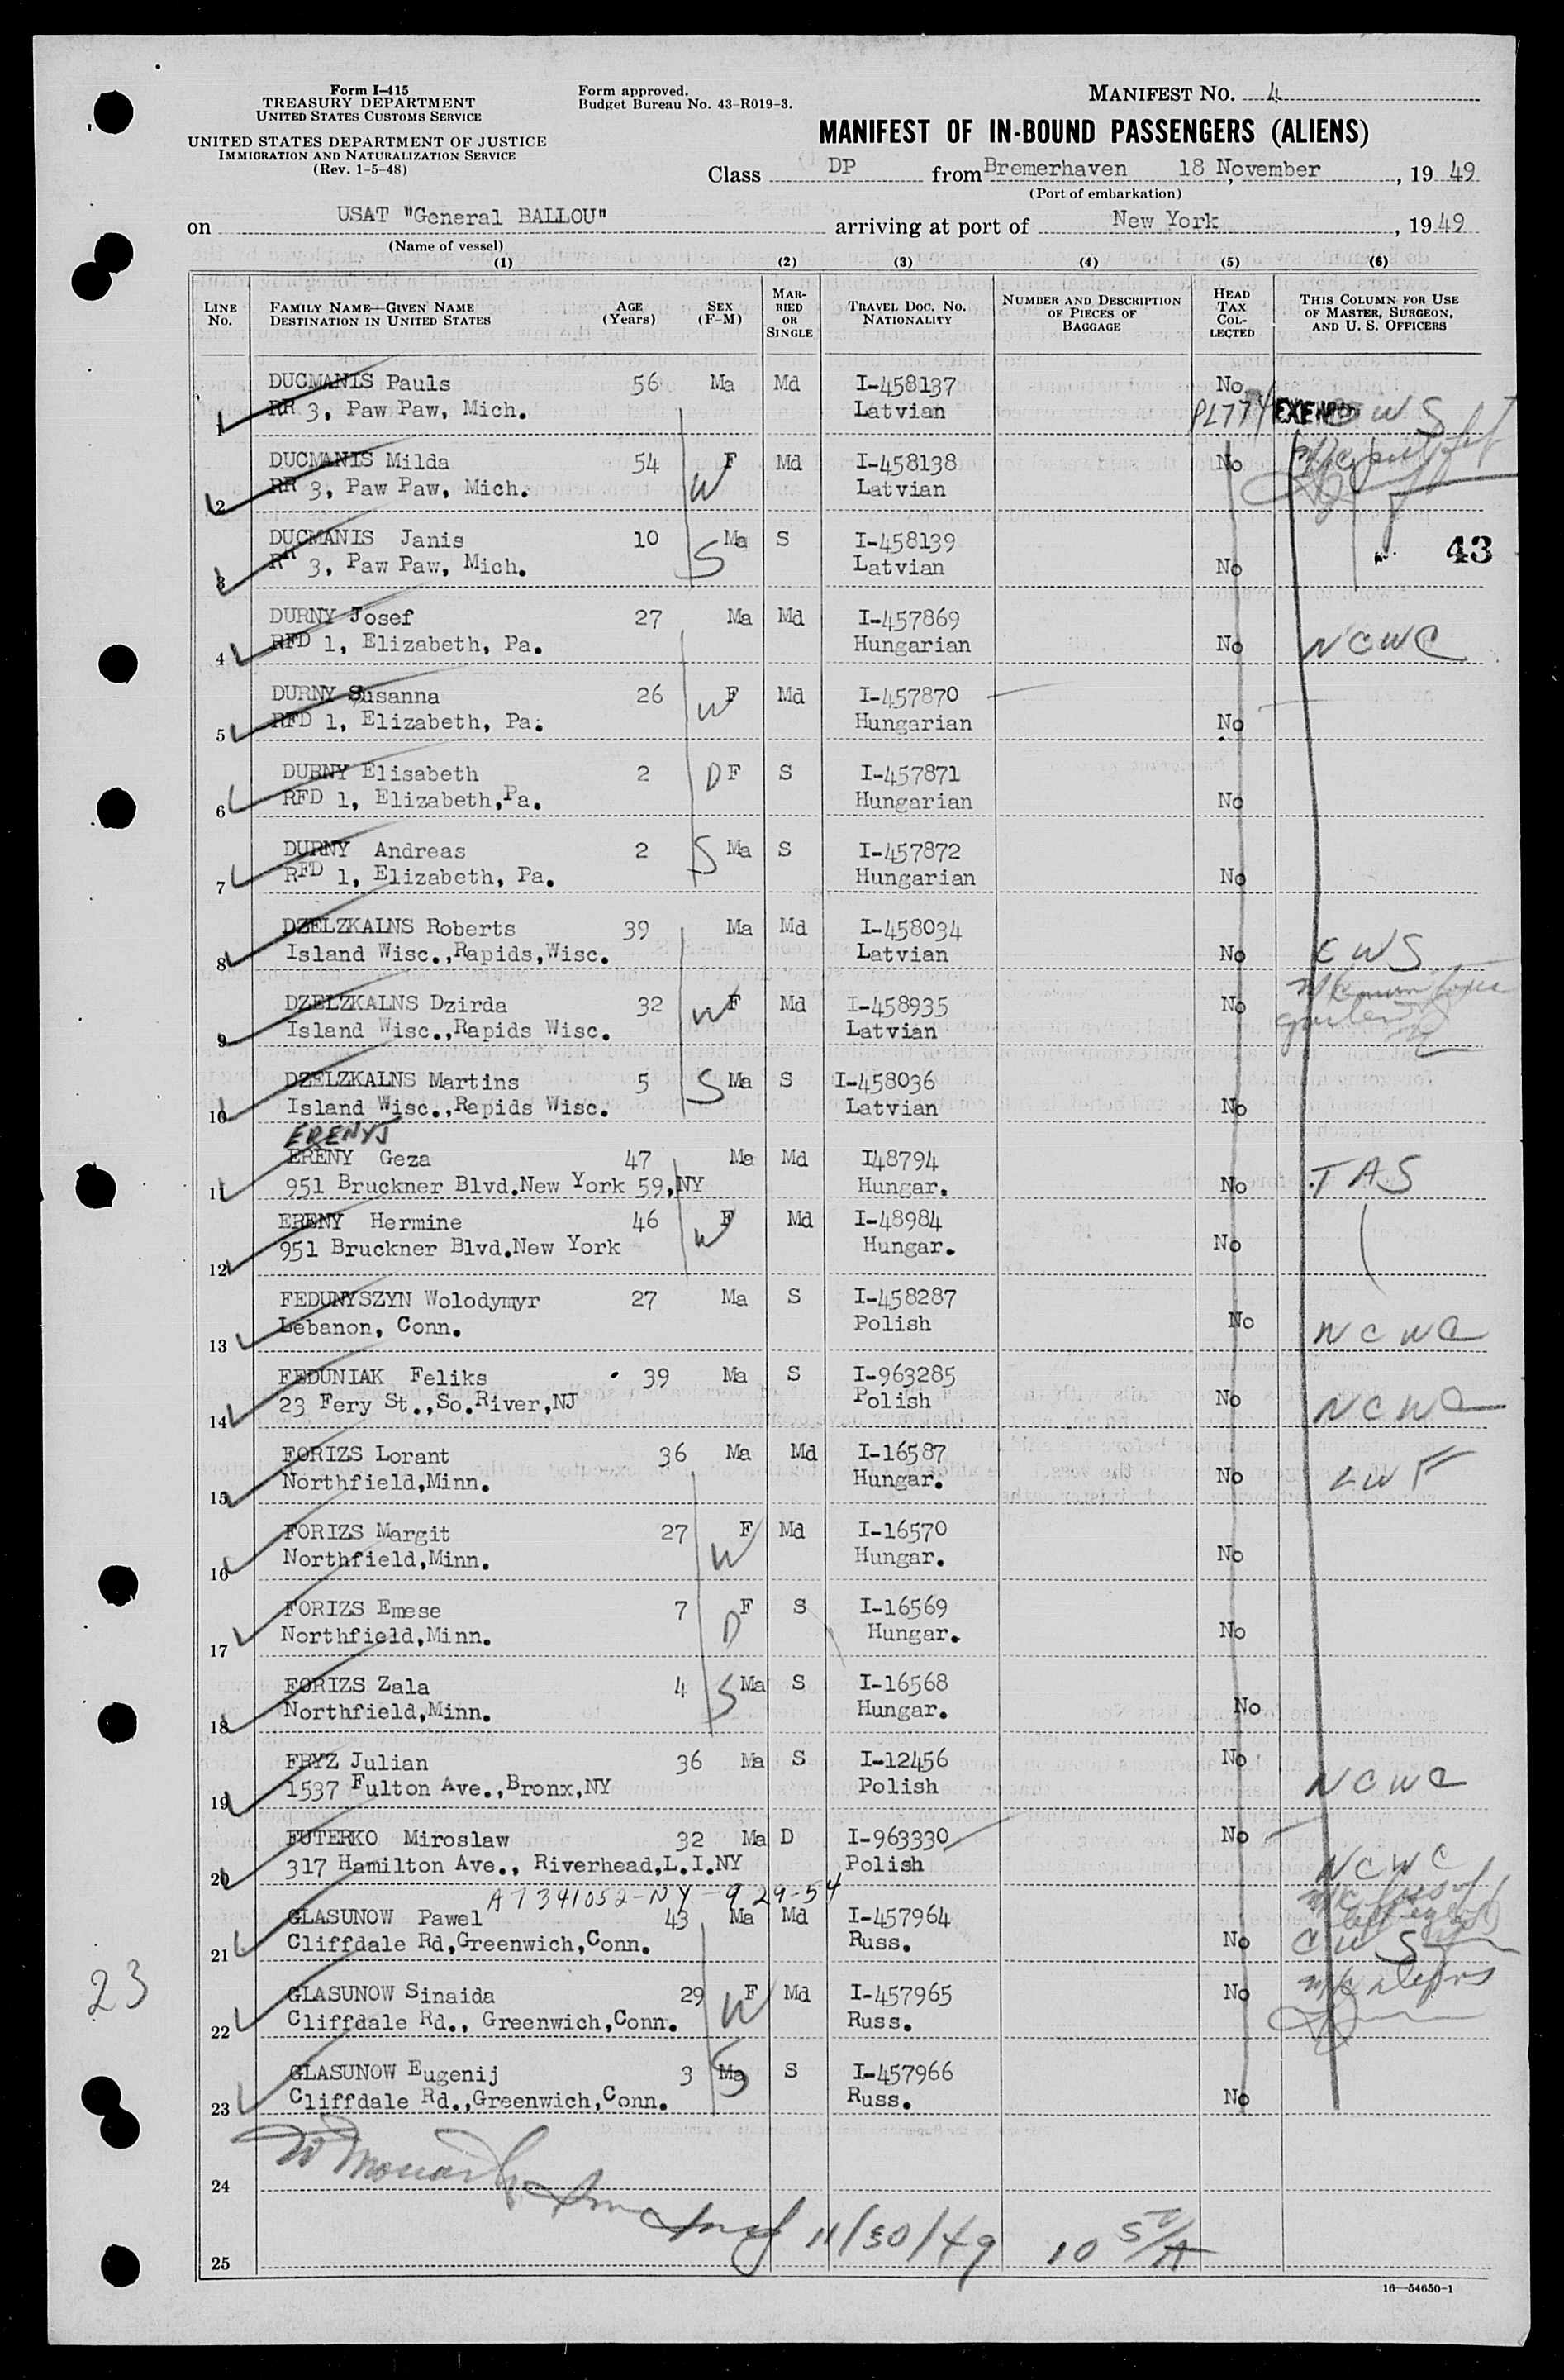 Form I-415
TREASURY DEPARTMENT
UNITED STATES CUSTOMS SERVICE
UNITED STATES DEPARTMENT OF JUSTICE
IMMIGRATION AND NATURALIZATION SERVICE
(Rev. 1-5-48)
Form approved.
Budget Bureau No. 43-R019-3.
MANIFEST NO. 4
MANIFEST OF IN-BOUND PASSENGERS (ALIENS)
Class DP from Bremerhaven 18 November, 1949
(Port of embarkation)
on USAT "General BALLOU" arriving at port of New York, 1949
(Name of vessel)
(1) (2) (3) (4) (5) (6)
LINE No. FAMILY NAME—GIVEN NAME DESTINATION IN UNITED STATES AGE (Years) SEX (F-M) MARRIED OR SINGLE TRAVEL DOC. NO. NATIONALITY NUMBER AND DESCRIPTION OF PIECES OF BAGGAGE HEAD TAX COLLECTED THIS COLUMN FOR USE OF MASTER, SURGEON, AND U. S. OFFICERS
DUCMANIS Pauls 56 Ma Md I-458137 No
1 RR 3, Paw Paw, Mich. Latvian PL774 EXEMPT C W S
DUCMANIS Milda 54 F Md I-458138 No
2 RR 3, Paw Paw, Mich. W Latvian
DUCMANIS Janis 10 Ma S I-458139 43
3 RR 3, Paw Paw, Mich. S Latvian No
DURNY Josef 27 Ma Md I-457869
4 RFD 1, Elizabeth, Pa. Hungarian No NCWC
DURNY Susanna 26 F Md I-457870
5 RFD 1, Elizabeth, Pa. W Hungarian No
DURNY Elisabeth 2 D F S I-457871
6 RFD 1, Elizabeth,Pa. Hungarian No
DURNY Andreas 2 S Ma S I-457872
7 RFD 1, Elizabeth, Pa. Hungarian No
DZELZKALNS Roberts 39 Ma Md I-458034
8 Island Wisc.,Rapids,Wisc. Latvian No C W S
DZELZKALNS Dzirda 32 W F Md I-458935 No
9 Island Wisc.,Rapids Wisc. Latvian
DZELZKALNS Martins 5 S Ma S I-458036
10 Island Wisc.,Rapids Wisc. Latvian No
ERENYJ
ERENY Geza 47 Ma Md I48794
11 951 Bruckner Blvd.New York 59,NY Hungar. No TAS
ERENY Hermine 46 F Md I-48984
12 951 Bruckner Blvd.New York W Hungar. No
FEDUNYSZYN Wolodymyr 27 Ma S I-458287
13 Lebanon, Conn. Polish No NCWC
FEDUNIAK Feliks 39 Ma S I-963285
14 23 Fery St.,So.River,NJ Polish No NCWC
FORIZS Lorant 36 Ma Md I-16587
15 Northfield,Minn. Hungar. No LWF
FORIZS Margit 27 F Md I-16570
16 Northfield,Minn. W Hungar. No
FORIZS Emese 7 F S I-16569
17 Northfield,Minn. D Hungar. No
FORIZS Zala 4 S Ma S I-16568
18 Northfield,Minn. Hungar. No
FRYZ Julian 36 Ma S I-12456 No
19 1537 Fulton Ave.,Bronx,NY Polish NCWC
FUTERKO Miroslaw 32 Ma D I-963330 No
20 317 Hamilton Ave., Riverhead,L.I.NY Polish NCWC
A7341052-NY-9 29-54
GLASUNOW Pawel 43 Ma Md I-457964
21 Cliffdale Rd,Greenwich,Conn. Russ. No C W S
GLASUNOW Sinaida 29 F Md I-457965 No
22 Cliffdale Rd., Greenwich,Conn. W Russ.
23
GLASUNOW Eugenij 3 S Ma S I-457966
23 Cliffdale Rd.,Greenwich,Conn. Russ. No
24
11/30/49
25
16—54650-1